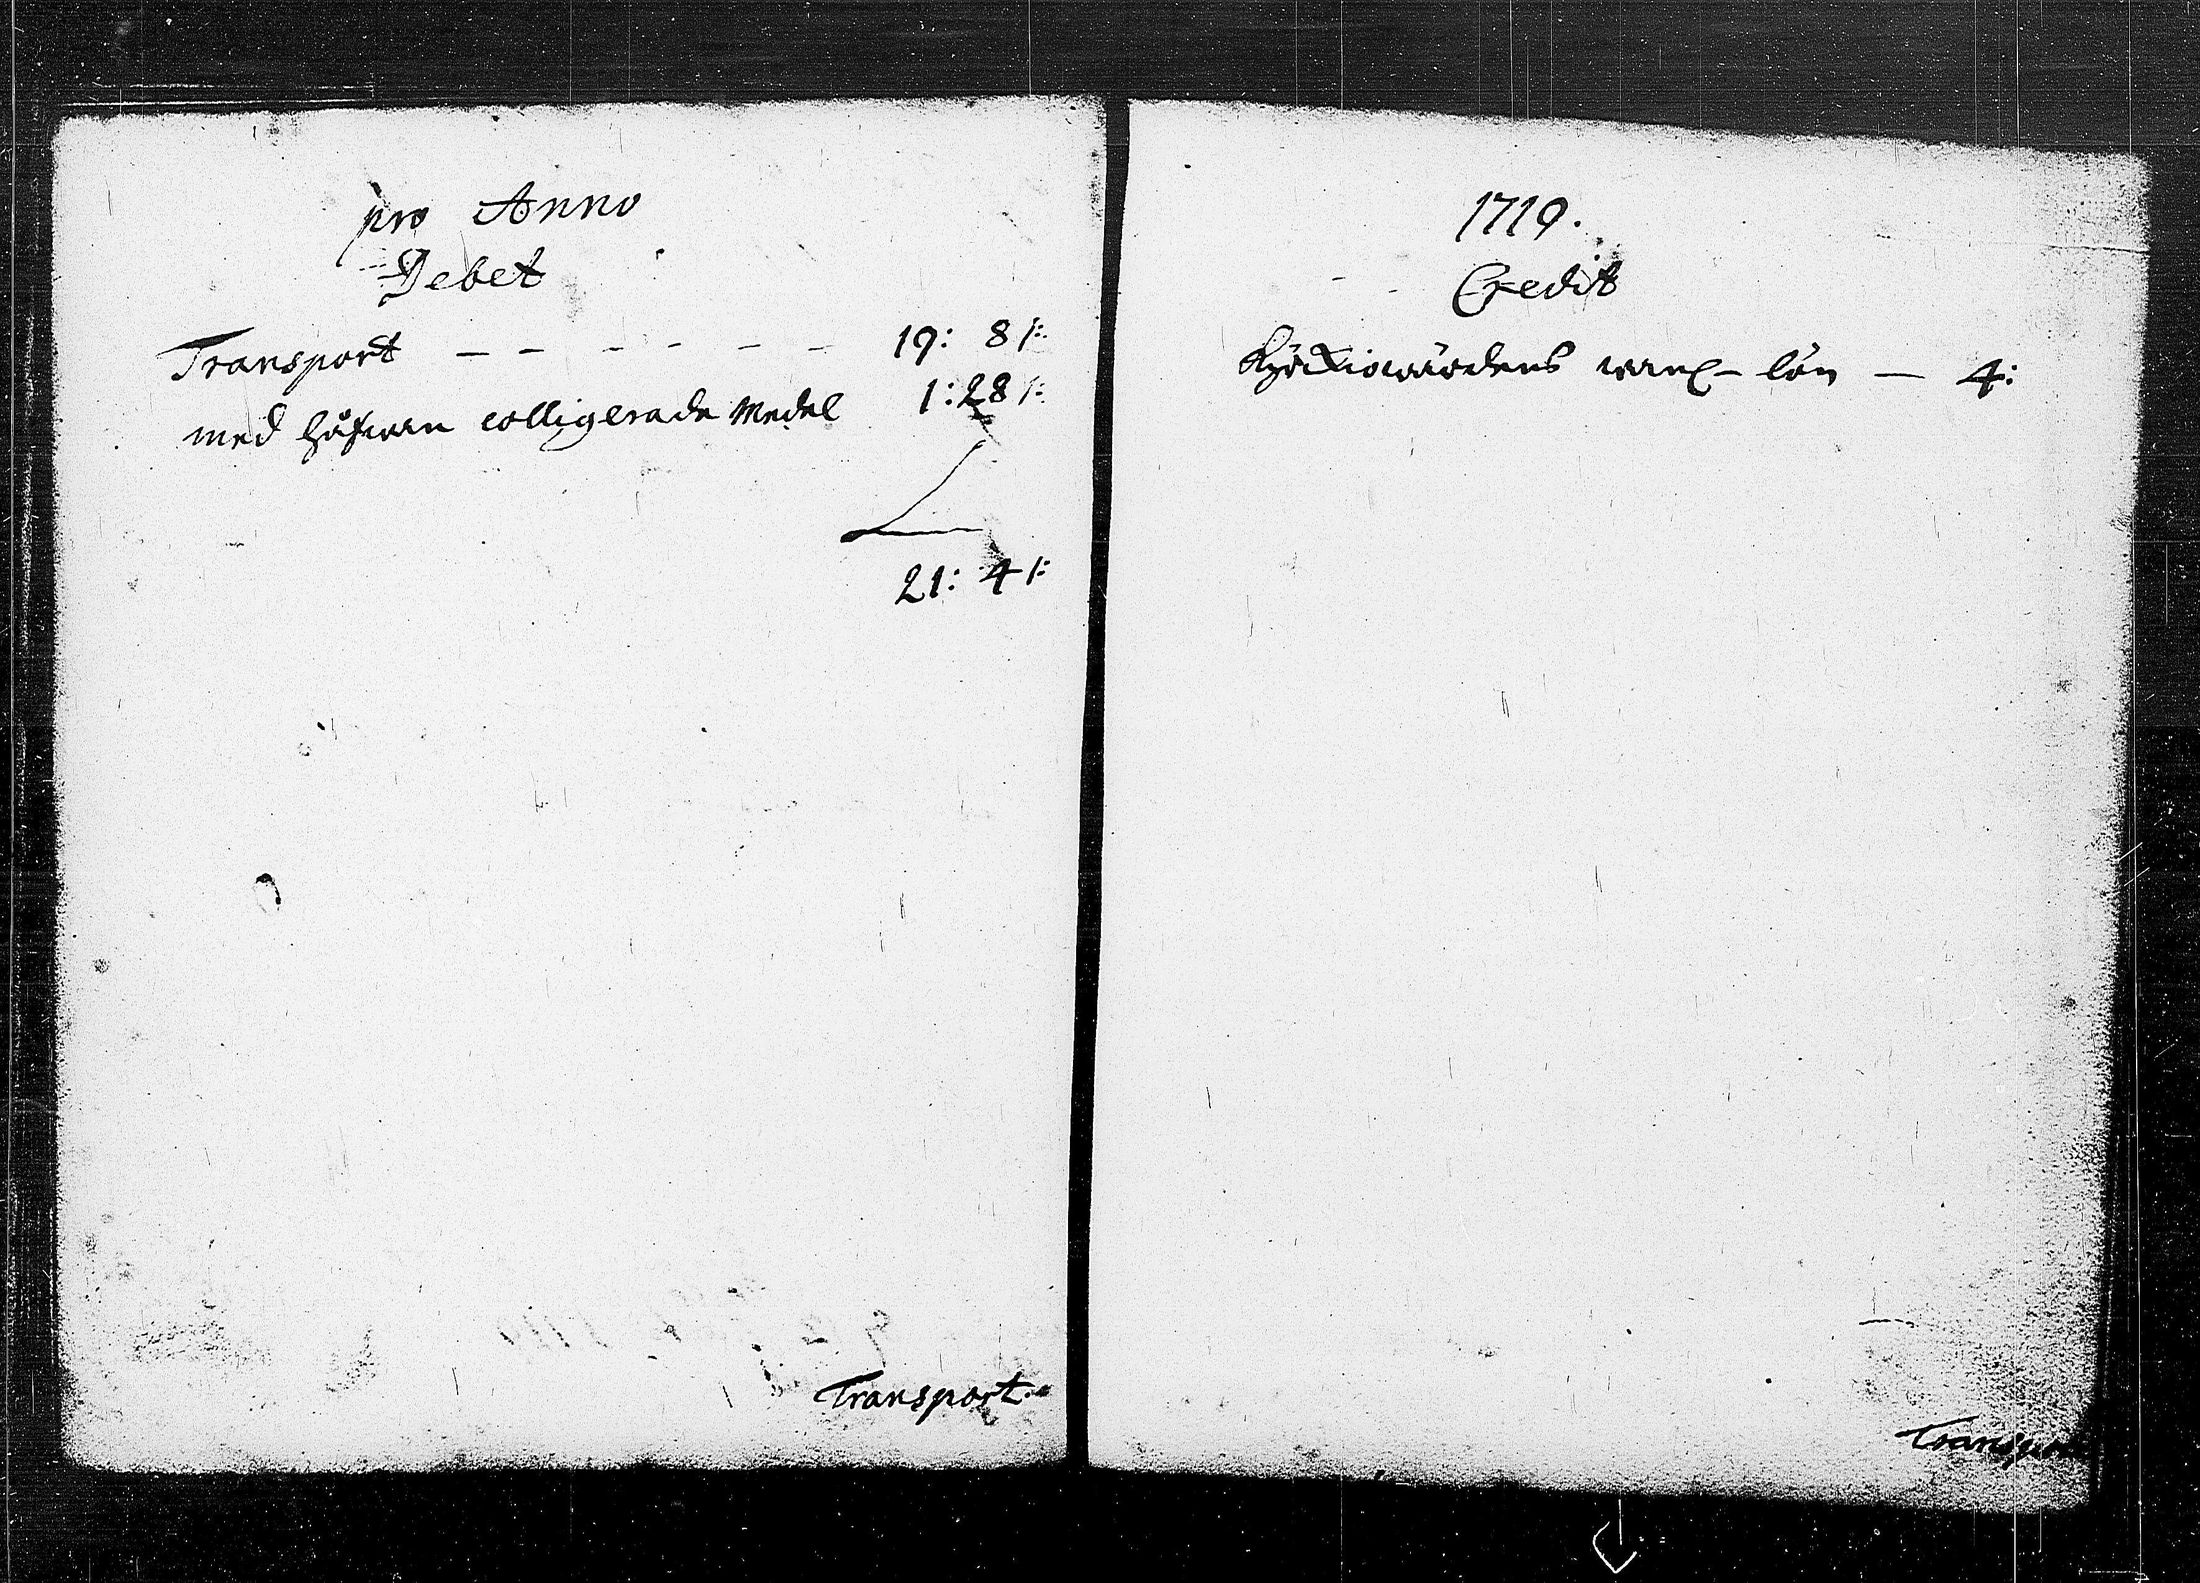 pro Anno
Debet
Transport — — — — — — 19: 8 /:
med håfwen colligerade Medel 1:28 /:
21: 4 /:
Transport.
1719.
Credit
Kyrkiowärdens lön — 4:
Transport